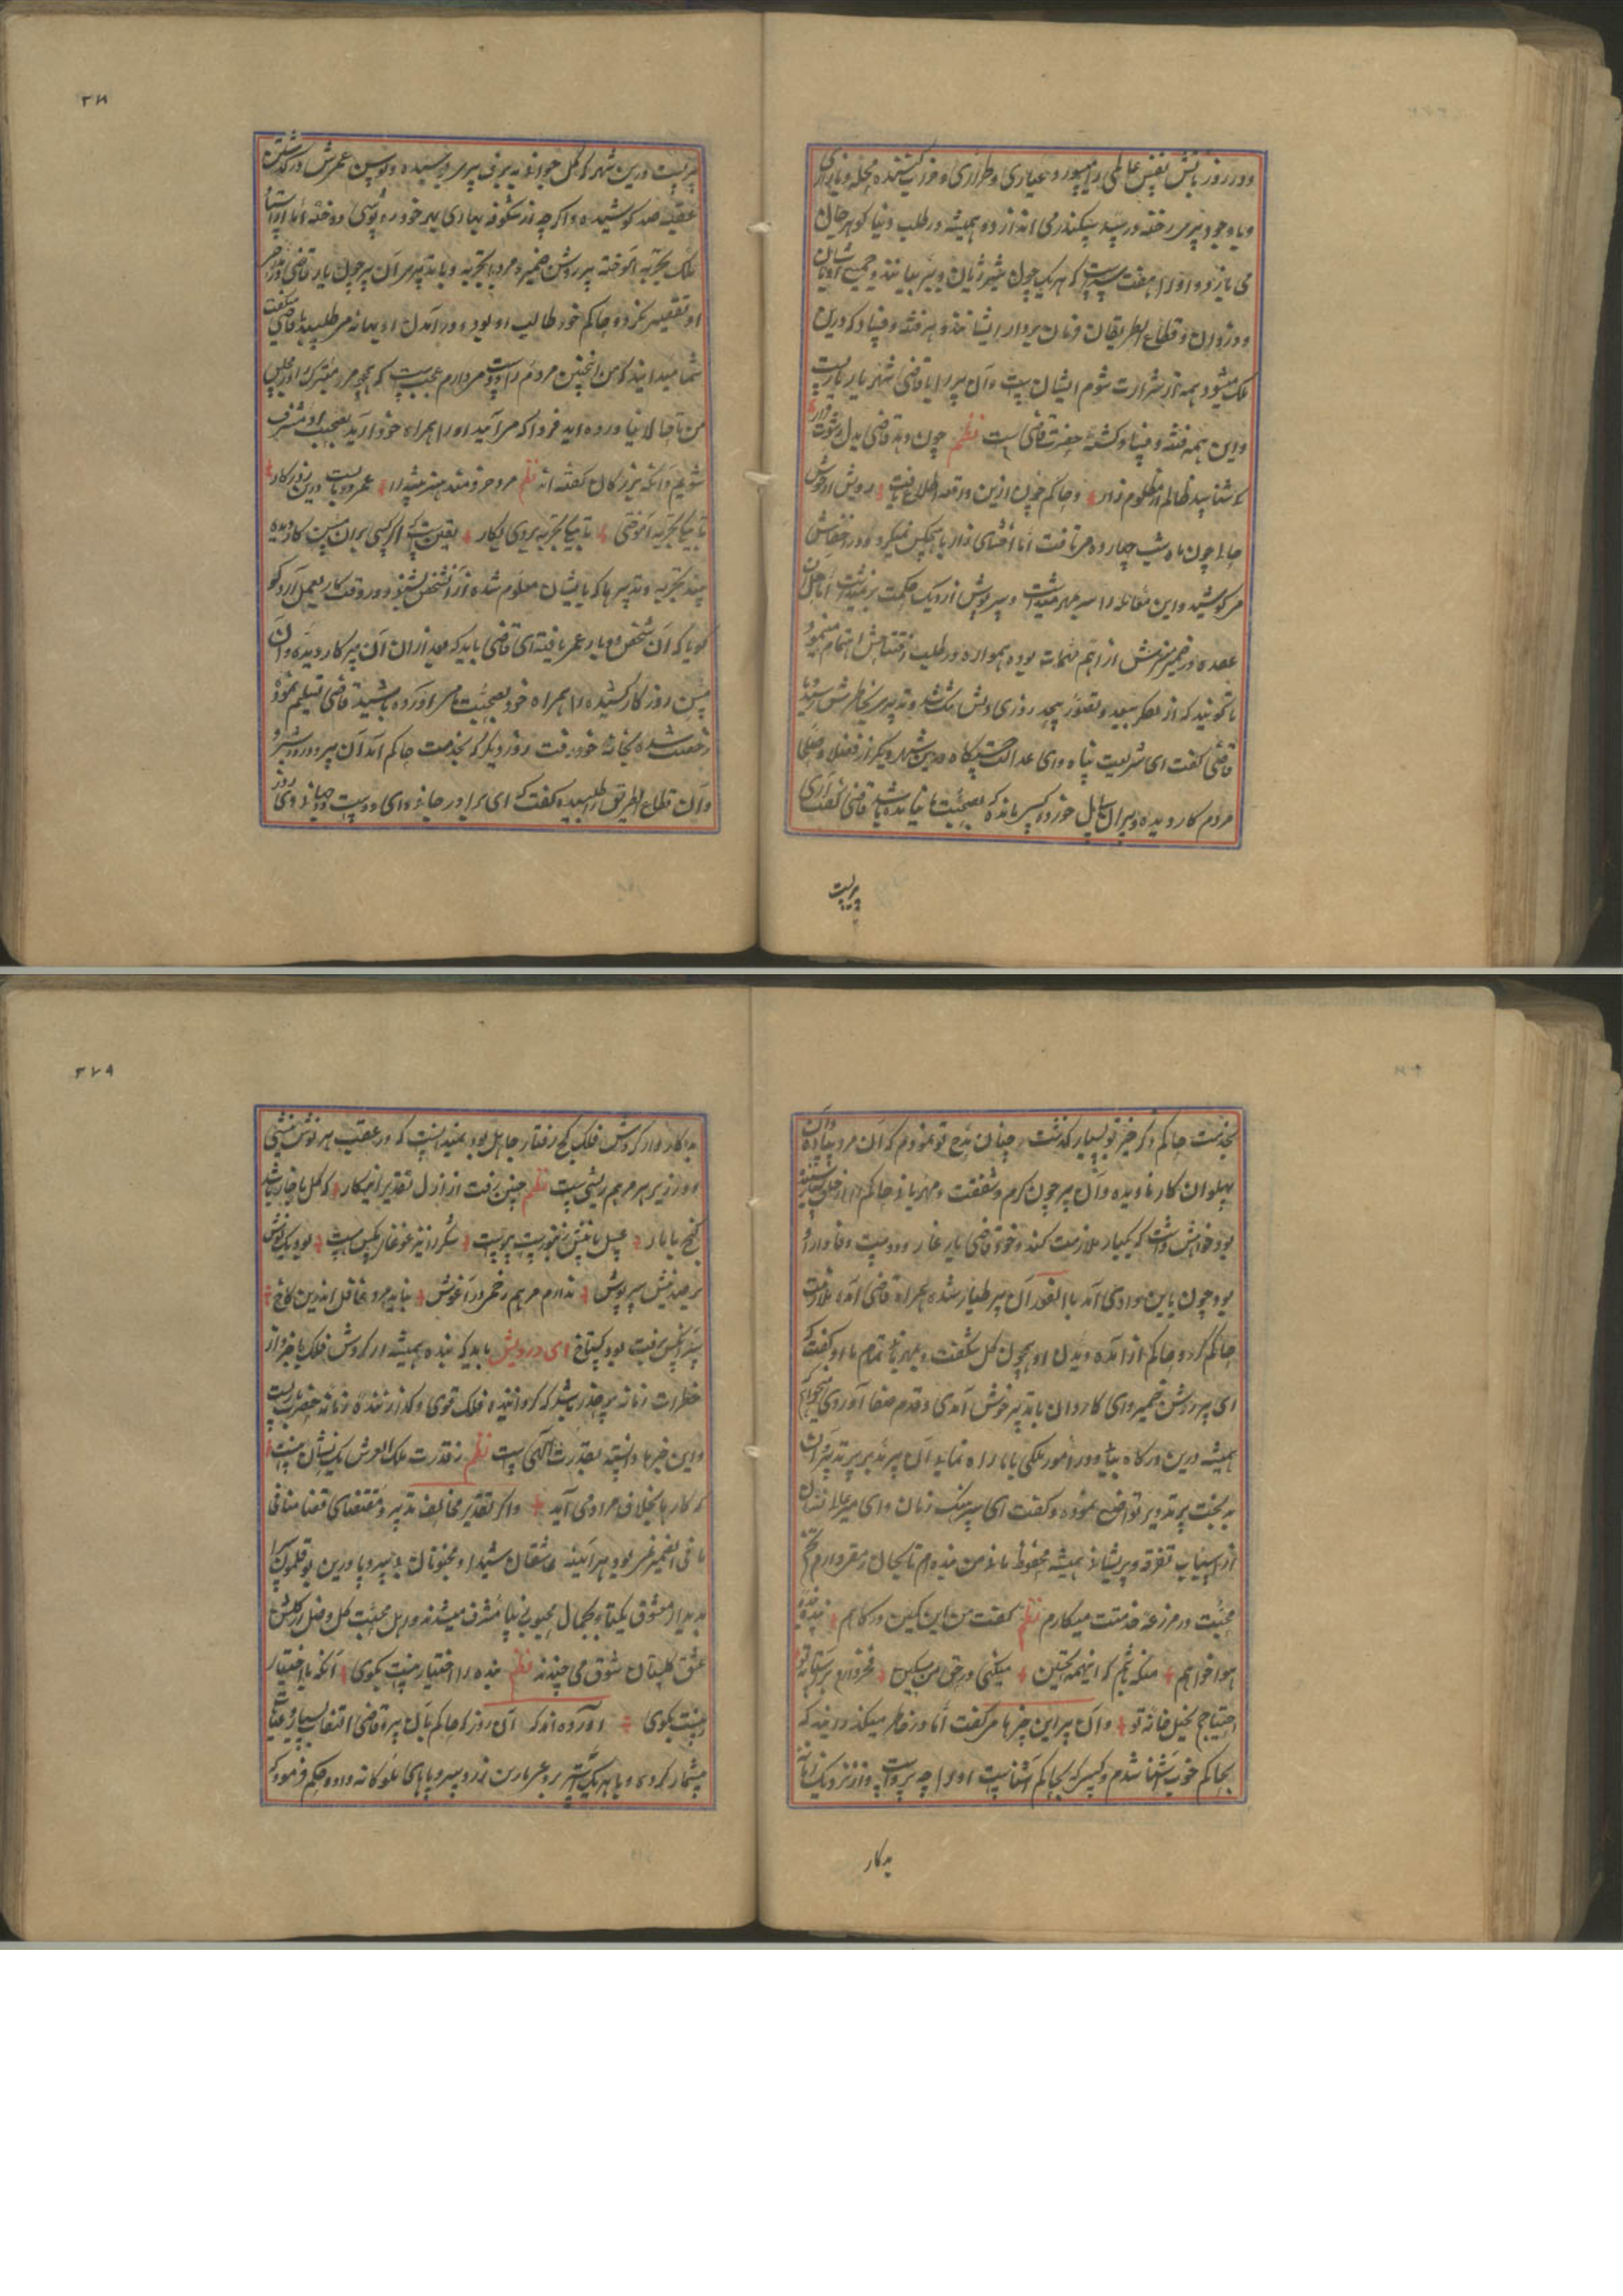 ۲۷۸
و در روز بآتش نفس عالمی را میسوزد و عیاری و طراری و خود را کشیده
و با وجود پیری رخنه در سد سکندر می اندازد و همیشه در طلب دنیا گوهر جان
می بازد و او را هفت پسر است که هر یک چون شیر ژیان و ببر بیانند و جمیع
و دزدان و قطاع الطریقان فرمان بردار ایشانند و هر فتنه و فساد که درین
ملک میشود همه از شرارت شوم ایشان است و آن پیر را با قاضی شهر یاریست
و این همه فتنه و فساد کشته حضرت قاضی است نظم چون دهد قاضی بدل رشوت قرار
کی شناسد ظالم از مظلوم زار و حاکم چون ازین واقعه اطلاع یافت رویش از جوش
چون ماه شب چهارده بر تافت اما افشای راز با هیچکس نمیکرد و در اخفایش
می کوشید و این مقاله را سر بمهر میداشت و سرپوش از دیک حکمت بر نمیداشت اما حل آن
عقده در ضمیر منیرش از اهم مهمات بوده همواره در طلب اهتمام مینمود
تا گویند که از فکر بیعد و تصور بیحد روزی دلش تنگ شد و تدبیری بخاطرش رسید با
قاضی گفت ای شریعت پناه و ای عدالت دستگاه درین شهر دیگر از فضلا و صلحا
مردم کار دیده و پیران سال خورده کسی مانده که بصحبت ما نیامده باشد قاضی گفت آری
پیریست
پیریست درین شهر که گل جوانی به برف پیری پوشیده و توسن عمرش در گذشتن
عقبه صد کوشیده و اگرچه از شکوفه بهاری پیر خود ره پوشی دوخته اما از دبستان
فلک تجربه آموخته پیر روشن ضمیر و مرد با تجربه و با تدبیر آن پیر چون یار قاضی بود
او تقصیر نکرد و حاکم خود طالب او بود و در آمدن او بهانه می طلبید با قاضی میگفت
شما میدانید که من اینچنین مردم را دوست میدارم عجبست که همچو مرد متبرک را در مجلس
من تا حالا نیاورده اید فردا که می آیید او را همراه خود آرید بصحبت او مشرف
شویم و آنکه بزرگان گفته اند نظم مرد خردمند هنر پیشه را عمر دو بایست درین روزگار
تا بیکی تجربه آموختی با بیکی تجربه بردی بکار یقین است که اگر کسی بر آن مسن کار دیده
چند تجربه و تدبیرها که بایشان معلوم شده از آن شخص بشنود و در وقت کار بعمل آرد گو
گویا که آن شخص دوباره عمر یافته ای قاضی باید که بعد ازان آن پیر کار دیده و آن
مسن روزگار کشیده را همراه خود بصحبت ما می آورده باشید قاضی تسلیم نموده
رخصت شده بخانه خود رفت روز دیگر که بخدمت حاکم آمد آن پیر دزد و شریر
و آن قطاع الطریق را طلبیده گفت که ای برادر جانی و ای دوست دو جهانی دی روز
۲۷۹
بخدمت حاکم ذکر خیر تو بسیار گذشت و چنان مدح تو نمودم که آن مرد ساده و آن
پهلوان کار نادیده و آن پیر چون کرم و شفقت و مهربانی حاکم را از خلق شنیده
بود خواهش داشت که یکبار ملازمت کند و خود قاضی یار غار و دوست وفادار او
بود چون باین مراد می آمد بالفور آن پیر طیار شده همراه قاضی آمده ملازمت
حاکم کرد و حاکم از آمدن و دیدن او همچون گل شگفت و بمهربانی تمام با او گفت که
ای پیر روشن ضمیر و ای کاردان با تدبیر خوش آمدی و قدم صفا آوردی میخواهم
همیشه درین درگاه بیایی و در امور ملکی ما را راه نمایی آن پیر
بد بخت پر تدویر تواضع نموده و گفت ای سرهنگ زمان و ای میر عالی نشان
از اسباب تفرقه و پریشانی همیشه محفوظ مانی من بنده ام تا بحال مقر دارم تخم
محبت در مزرعه خدمتت میکارم نظم گفت من این کمین درگاهم بنده
هواخواهم منکه باشم که اینهمه تحسین میکنی در حق من مسکین
احتیاجم بخیل خانه تو و آن پیر این چیزها می گفت اما در خاطر میگذرانید که
بحاکم خوب آشنا شدم و کسی که بحاکم آشناست او را چه پرواست و از نزدیک
بد کار
بد کار و از گردش فلک کج رفتار جاهل بود نمیدانست که در عقب هر نوش نیشی
و در زیر هر مرهم ریشی است نظم چنین رفت از ازل تقدیر این کار که گل با خار باشد
گنج با مار عسل با نیش زنبور است پیوست شکر را نیز غوغای مگس هست بود یک نوش
بر صد نیش سرپوش ندارد مرهم زخم در آغوش نباید مرد غافل اندرین کاخ
گستاخ ای درویش باید که بنده همیشه از گردش فلک با خبر و از
خطرات زمانه بر حذر باشد که گرداننده فلک قوی و گذراننده زمانه حضرت باریست
و این خیر ها وابسته بقدرت الهی است نظم ز قدرت ملک العرش یک نشان اینست
که کارها بخلاف مراد می آید و اگر تقدیر مخالف تدبیر و مقتضای قضا منافی
ما فی الضمیر نمی بود هر آینه عاشقان شیدا و مجنونان بی سر و پا درین بوقلمون سرا
بدیدار معشوق یکتا و بجمال محبوب زیبا مشرف میشدند و بدل محبت گل وصل از گلشن
عشق گلستان شوق می چیدند نظم بنده را اختیار نیست بکوی آنکه با اختیار
نیست بکوی آورده اند که آن روز که حاکم بآن پیر و قاضی التفات بسیار و عنایت
بیشمار کرده و با هر یک اسپ بدو عربی با زین زر و سر و پاهای ملوکانه داد و حکم فرمود که